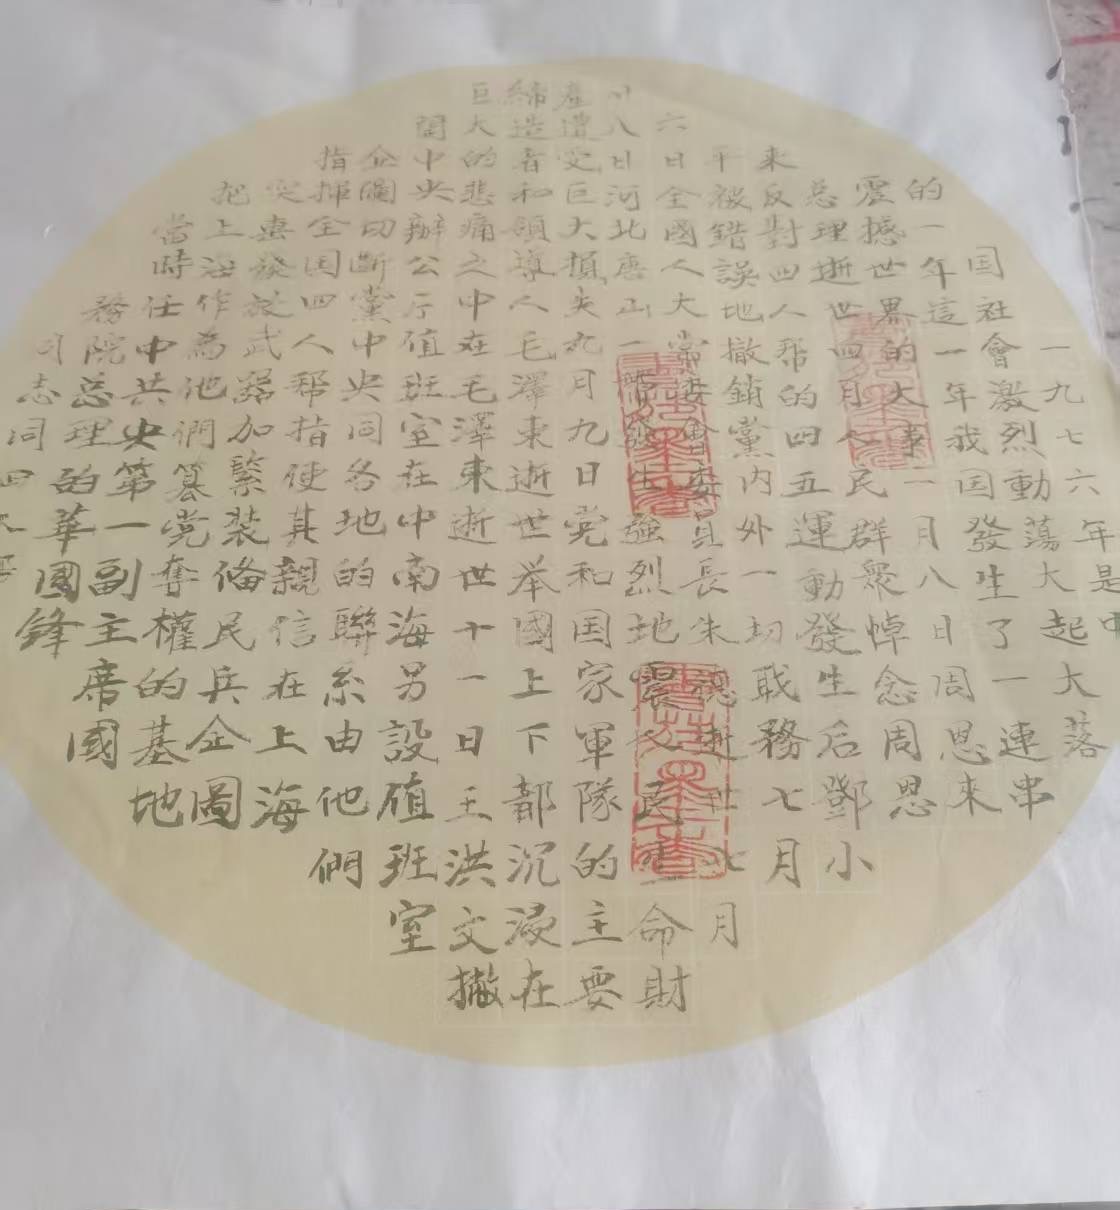 一九七六年是中
国社會激烈動蕩大起大落
的一年這一年我国發生了一連串
震撼世界的大事一月八日周恩來
总理逝世四月人民群衆悼念周恩
来反對四人帮的四五運動發生后鄧小
平被錯誤地撤銷黨内外一切戢務七月
六日全國人大常委會委員長朱德逝世七月
八日河北唐山一帶發生強烈地震人民生命財
產遭受巨大損失九月九日党和国家軍隊的主要
締造者和領導人毛澤東逝世举國上下都沉浸在
巨大的悲痛之中在毛澤東逝世十一日王洪文撇
開中央辦公厅值班室在中南海另設值班室
企圖切断黨中央同各地的聯系由他們
指揮全国四人帮指使其親信在上海
突發放武器加緊装備民兵企圖
把上海作為他們篡党奪權的基地
當時任中共央第一副主席國
務院总理的華國鋒
同志同四